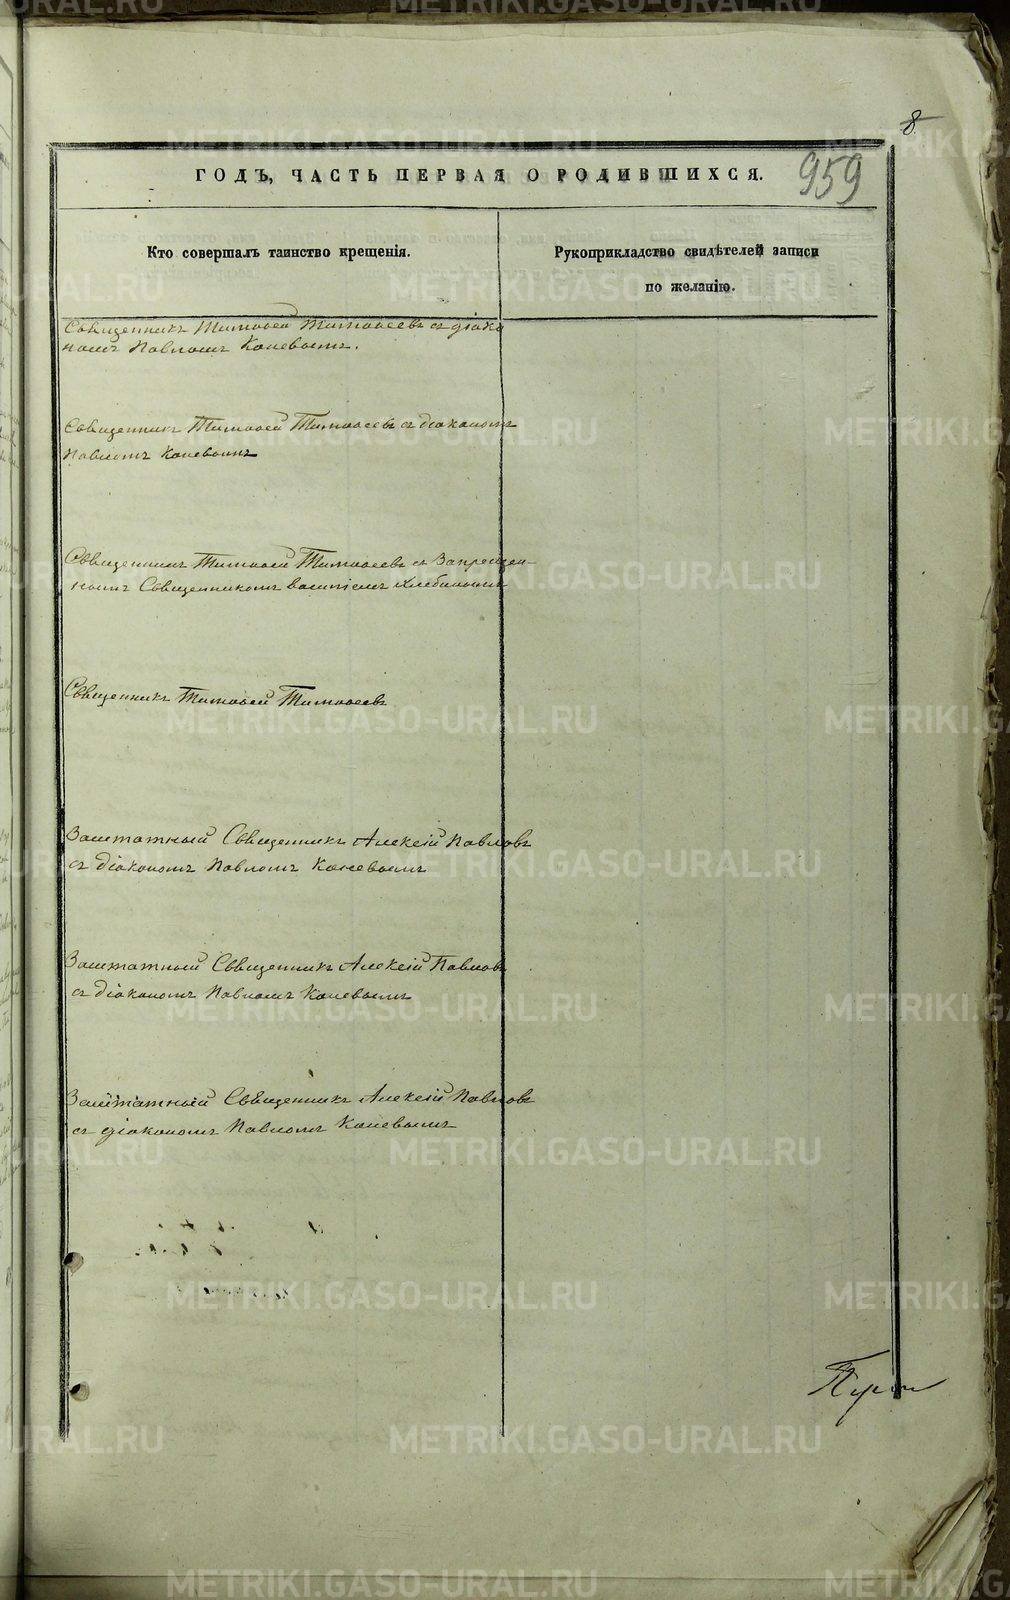 8
959
ГОДЪ, ЧАСТЬ ПЕРВАЯ О РОДИВШИХСЯ.
Кто совершалъ таинство крещенія.
Рукоприкладство свидѣтелей записи
по желанію.
Священникъ Тимоѳей Тимоѳеевъ съ діако
номъ Павломъ Коневымъ.
Священникъ Тимоѳей Тимоѳеевъ съ діакономъ
Павломъ Коневымъ
Священникъ Тимоѳей Тимоѳеевъ съ Запрещен-
нымъ Священникомъ Хлебинымъ
Священникъ Тимоѳей Тимоѳеевъ
Заштатный Священникъ Алексій Павловъ
съ діакономъ Павломъ Коневымъ
Заштатный Священникъ Алексій Павловъ
съ діакономъ Павломъ Коневымъ
Заштатный Священникъ Алексій Павловъ
съ діакономъ Павломъ Коневымъ
METRIKI.GASO-URAL.RU